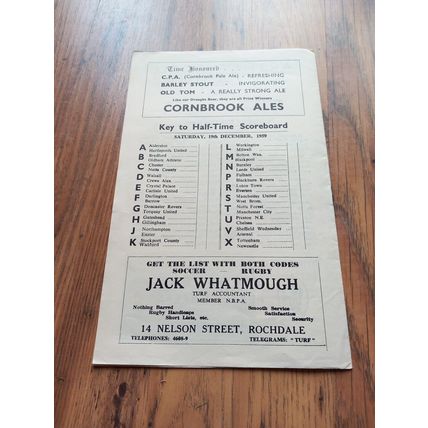 Time Honoured
C.P.A. (Cornbrook Pale Ale) - REFRESHING
BARLEY STOUT - INVIGORATING
OLD TOM - A REALLY STRONG ALE
Like our Draught Beer, they are all Prize Winners
CORNBROOK ALES
Key to Half-Time Scoreboard
SATURDAY, 19th DECEMBER, 1959
A Aldershot
Hartlepools United
B Bradford
Oldham Athletic
C Chester
Notts County
D Walsall
Crewe Alex
E Crystal Palace
Carlisle United
F Darlington
Barrow
G Doncaster Rovers
Torquay United
H Gateshead
Gillingham
J Northampton
Exeter
K Stockport County
Watford
L Workington
Millwall
M Bolton Wan.
Blackpool
N Burnley
Leeds United
P Fulham
Blackburn Rovers
R Luton Town
Everton
S Manchester United
West Brom.
T Notts Forest
Manchester City
U Preston N.E.
Chelsea
V Sheffield Wednesday
Arsenal
X Tottenham
Newcastle
GET THE LIST WITH BOTH CODES
SOCCER RUGBY
JACK WHATMOUGH
TURF ACCOUNTANT
MEMBER N.B.P.A.
Nothing Barred
Rugby Handicaps
Short Lists, etc.
Smooth Service
Satisfaction
Security
14 NELSON STREET, ROCHDALE
TELEPHONES: 4608-9 TELEGRAMS: "TURF"